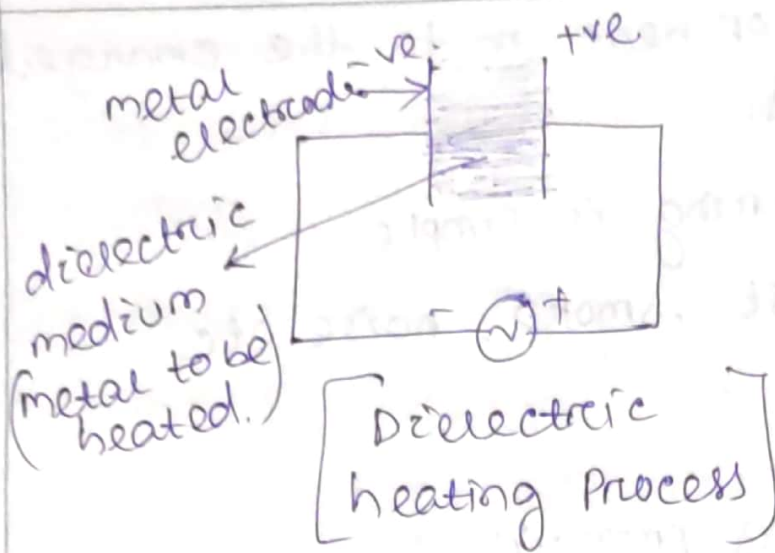 -ve.
+ve
metal
electrode
dielectric
medium
(metal to be
heated.)
- +
[Dielectric
heating Process]